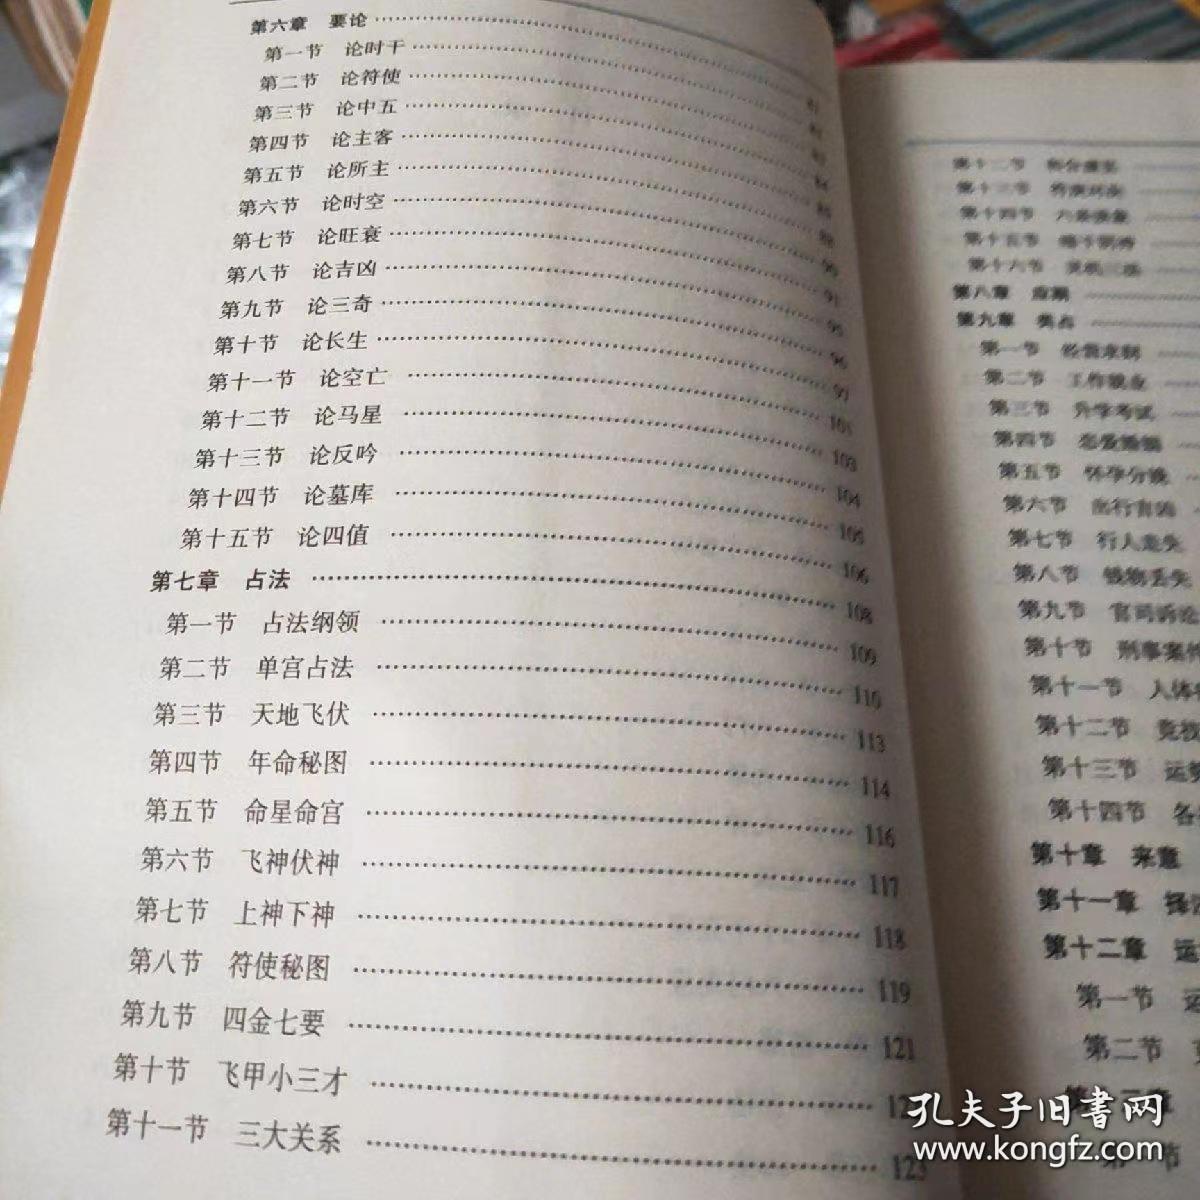 第六章 要论
第一节 论时干
第二节 论符使 81
第三节 论中五
第四节 论主客
第五节 论所主 84
第六节 论时空
第七节 论旺衰 88
第八节 论吉凶 90
第九节 论三奇 91
第十节 论长生 95
第十一节 论空亡 96
第十二节 论马星 97
第十三节 论反吟 101
第十四节 论墓库 103
第十五节 论四值 104
105
第七章 占法 106
第一节 占法纲领 108
第二节 单宫占法 109
第三节 天地飞伏 110
第四节 年命秘图 113
第五节 命星命宫 114
第六节 飞神伏神 116
第七节 上神下神 117
第八节 符使秘图 118
第九节 四金七要 119
第十节 飞甲小三才 121
第十一节 三大关系
123
第十二节
第十三节
第十四节 六亲
第十五节
第十六节
第八章 应期
第九章 类占
第一节 经营求财
第二节 工作就业
第三节 升学考试
第四节 恋爱婚姻
第五节 怀孕分娩
第六节 出行吉凶
第七节 行人走失
第八节 钱物丢失
第九节 官司诉讼
第十节 刑事案件
第十一节 人体
第十二节 竞技
第十三节 运势
第十四节 各
第十章 来意
第十一章 择
第十二章 运
第一节 运
第二节
孔夫子旧书网
www.kongfz.com